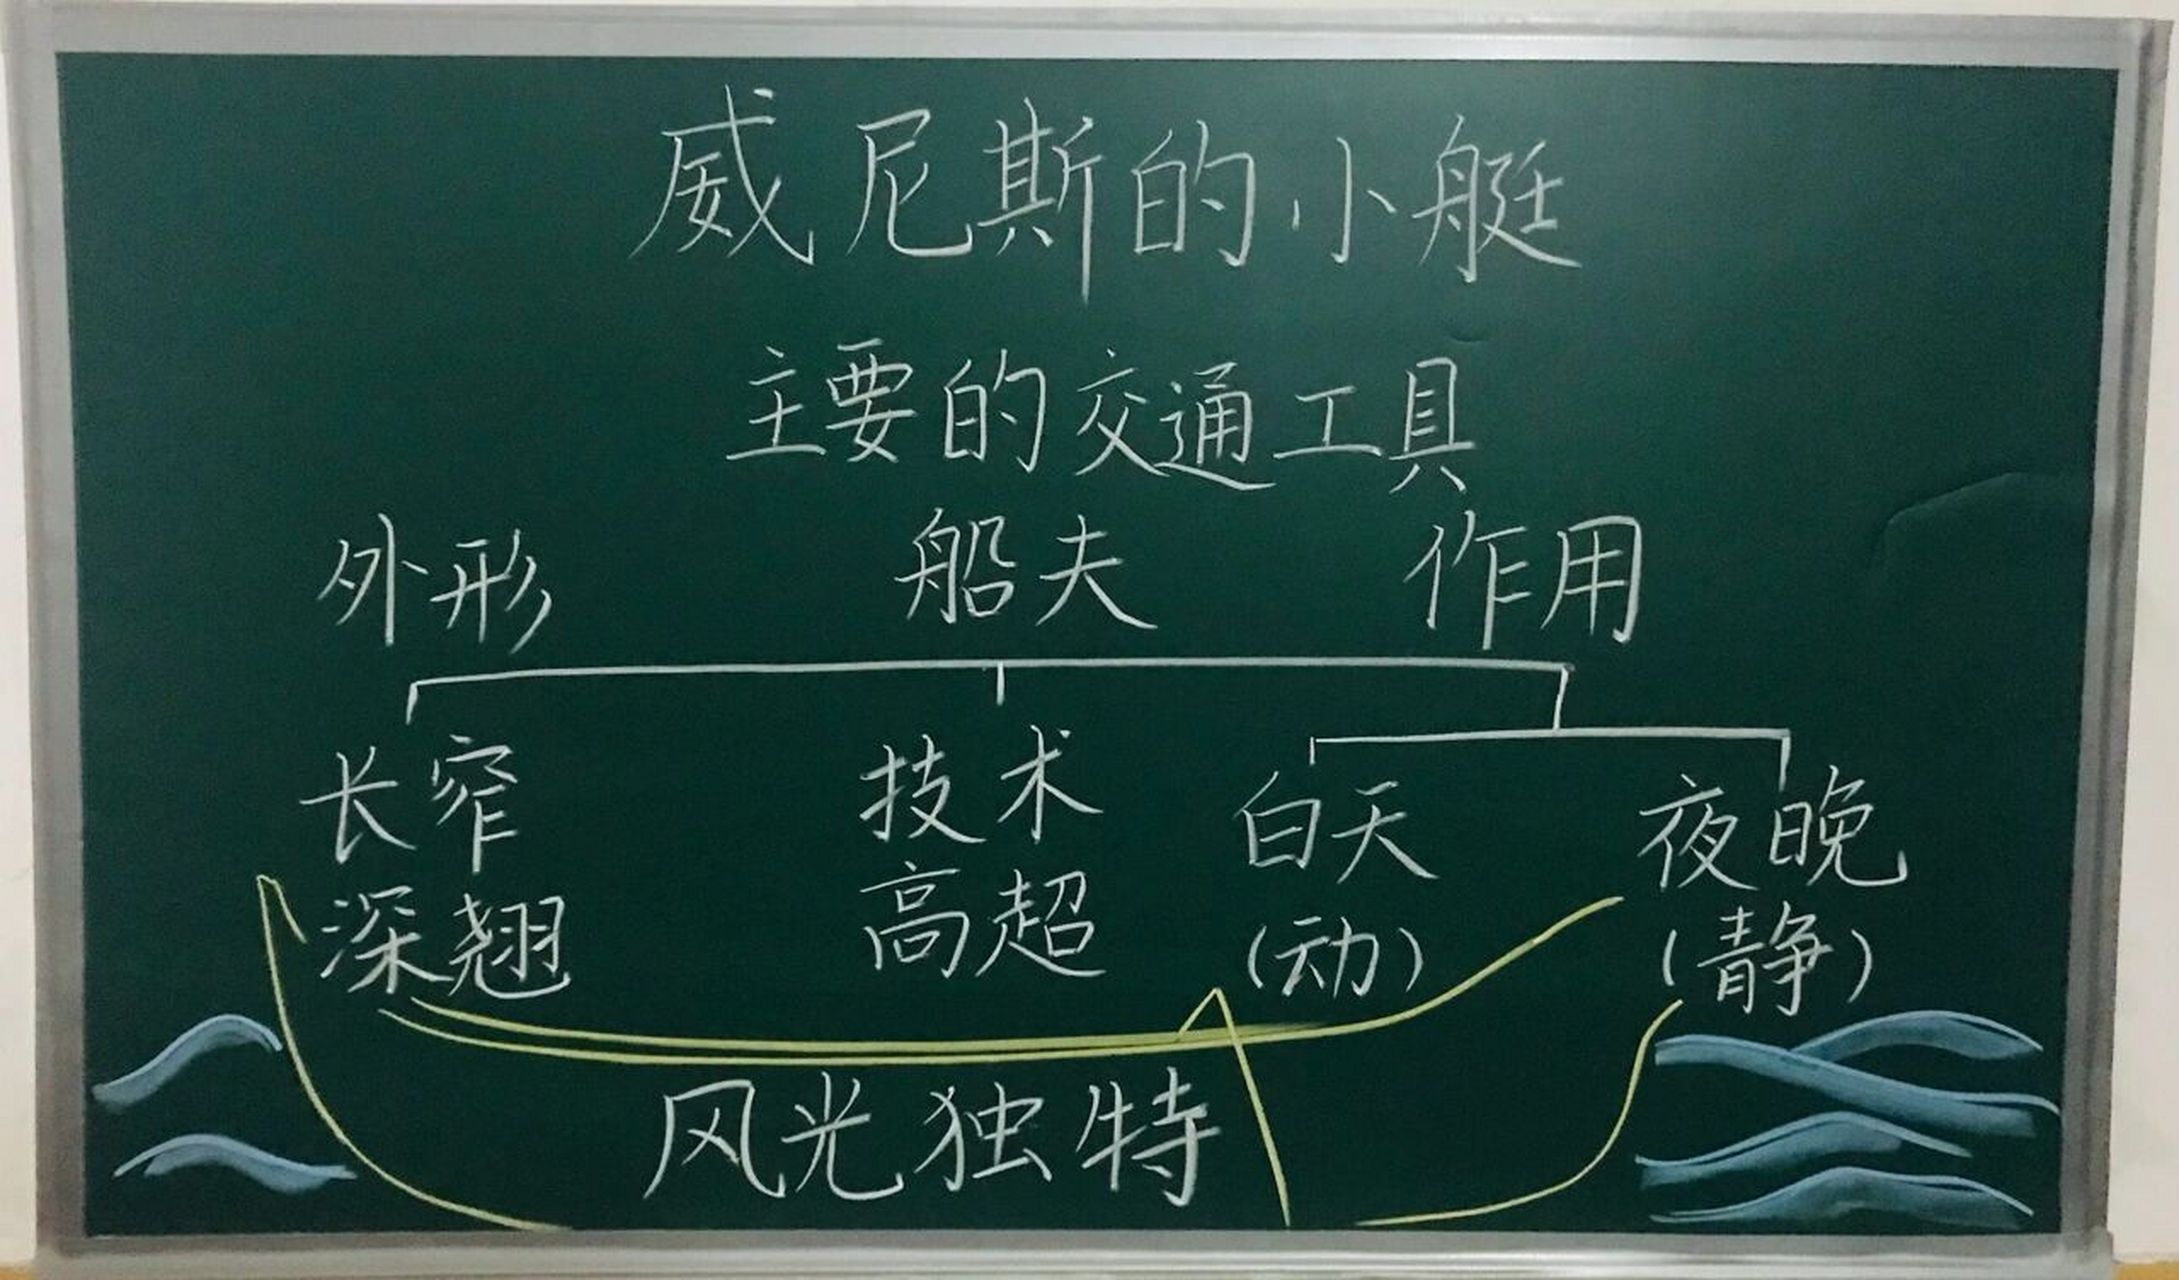 威尼斯的小艇
主要的交通工具
外形 船夫 作用
长窄 技术 白天 夜晚
深翘 高超 (动) (静)
风光独特